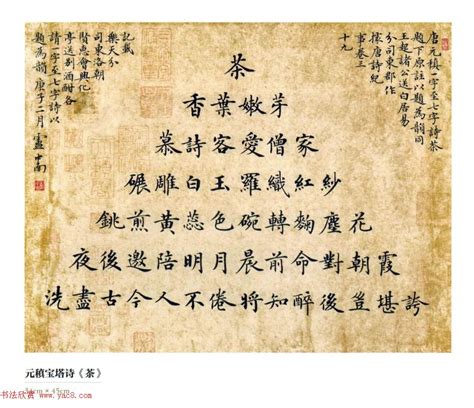 唐元稹一字至七字詩茶
題下原註以題為韻同
王起諸公送白居易
分司東郡作
懷唐詩紀
事卷三
十九
茶
香葉嫩芽
慕詩客愛僧家
碾雕白玉羅織紅紗
銚煎黃蕊色碗轉麴塵花
夜後邀陪明月晨前命對朝霞
洗盡古今人不倦將知醉後豈堪誇
記載
樂天分
司東洛朝
賢悉會興化
亭送別酒酣各
請一字至七字詩以
題為韻庚子二月盧中南
元稹宝塔诗《茶》
书法欣赏 www.yac8.com